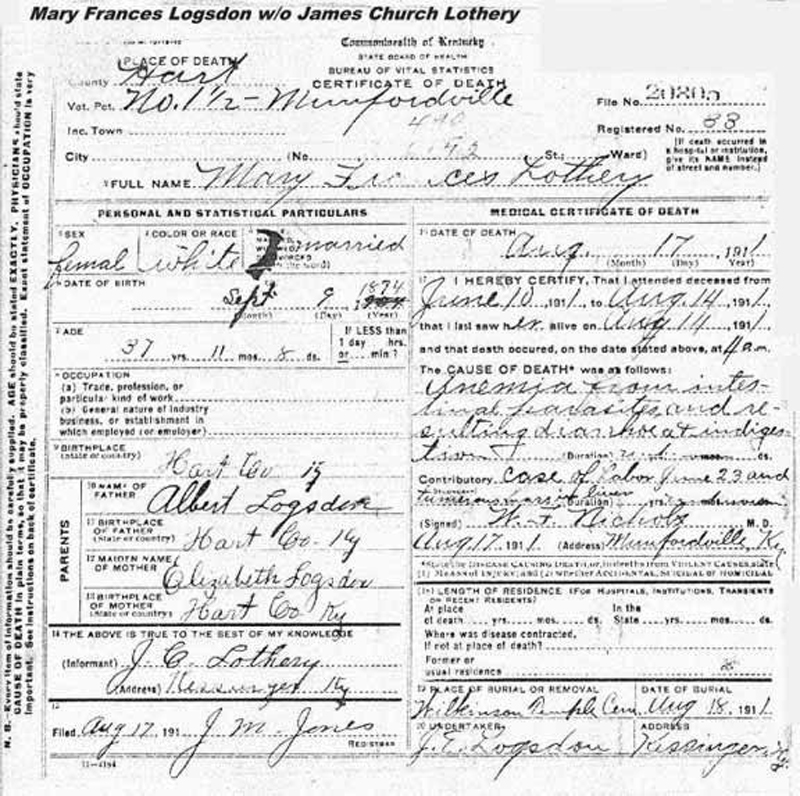 Mary Frances Logsdon w/o James Church Lothery
Commonwealth of Kentucky
STATE BOARD OF HEALTH
BUREAU OF VITAL STATISTICS
CERTIFICATE OF DEATH
PLACE OF DEATH
County Hart
Vot. Pct. No. 1 1/2 - Munfordville
File No.
Inc. Town
Registered No. 33
City (No. St.; Ward)
[If death occurred in a hospital or institution, give its NAME instead of street and number.]
FULL NAME Mary Frances Lothery
PERSONAL AND STATISTICAL PARTICULARS
SEX
femal
COLOR OR RACE
white
married
DATE OF BIRTH
Sept. 9 1874
(Month) (Day) (Year)
AGE
37 yrs. 11 mos. 8 ds.
If LESS than
1 day hrs.
or min?
OCCUPATION
(a) Trade, profession, or
particular kind of work
(b) General nature of industry
business, or establishment in
which employed (or employer)
BIRTHPLACE
(State or country) Hart Co Ky
PARENTS
10 NAME OF
FATHER Albert Logsdon
11 BIRTHPLACE
OF FATHER
(State or country) Hart Co. Ky
12 MAIDEN NAME
OF MOTHER Elizabeth Logsdon
13 BIRTHPLACE
OF MOTHER
(State or country) Hart Co Ky
14 THE ABOVE IS TRUE TO THE BEST OF MY KNOWLEDGE
(Informant) J. C. Lothery
(Address) Ky
15
Filed Aug 17, 191 J. M. Jones
REGISTRAR
11-4184
MEDICAL CERTIFICATE OF DEATH
DATE OF DEATH
Aug. 17 1911
(Month) (Day) (Year)
I HEREBY CERTIFY, That I attended deceased from
June 10, 1911, to Aug 14, 1911,
that I last saw her alive on Aug 14, 1911,
and that death occured, on the date stated above, at 4 a.m.
The CAUSE OF DEATH* was as follows:
Anemia from intes-
tinal parasites and re-
sulting diarrhoea & indiges-
tion (Duration) mos. ds.
Contributory Case of Labor June 23 and
(Duration)
(Signed) W. F. Nichols M. D.
Aug 17, 1911 (Address) Munfordville, Ky
*State the DISEASE CAUSING DEATH, or, in deaths from VIOLENT CAUSES, state
(1) MEANS OF INJURY; and (2) whether ACCIDENTAL, SUICIDAL or HOMICIDAL
LENGTH OF RESIDENCE (FOR HOSPITALS, INSTITUTIONS, TRANSIENTS
OR RECENT RESIDENTS)
At place In the
of death yrs. mos. ds. State yrs. mos. ds.
Where was disease contracted,
if not at place of death?
Former or
usual residence
19 PLACE OF BURIAL OR REMOVAL
Wilkinson Temple Cem
DATE OF BURIAL
Aug 18, 1911
20 UNDERTAKER
J. E. Logsdon
ADDRESS
Kessinger, Ky
N. B.—Every item of information should be carefully supplied. AGE should be stated EXACTLY. PHYSICIANS should state
CAUSE OF DEATH in plain terms, so that it may be properly classified. Exact statement of OCCUPATION is very
important. See instructions on back of certificate.